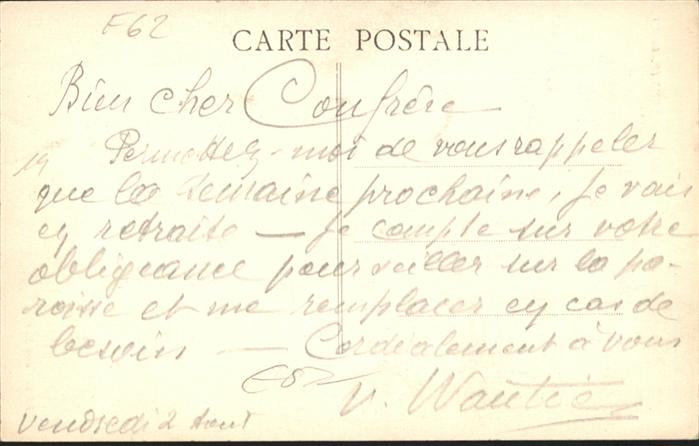 F62
CARTE POSTALE
Bien cher Confrère
Permettez-moi de vous rappeler
que la semaine prochaine, je vais
en retraite — Je compte sur votre
obligeance pour veiller sur la pa-
roisse et me remplacer en cas de
besoin — Cordialement à vous
V. Wautié
Vendredi 2 Aout